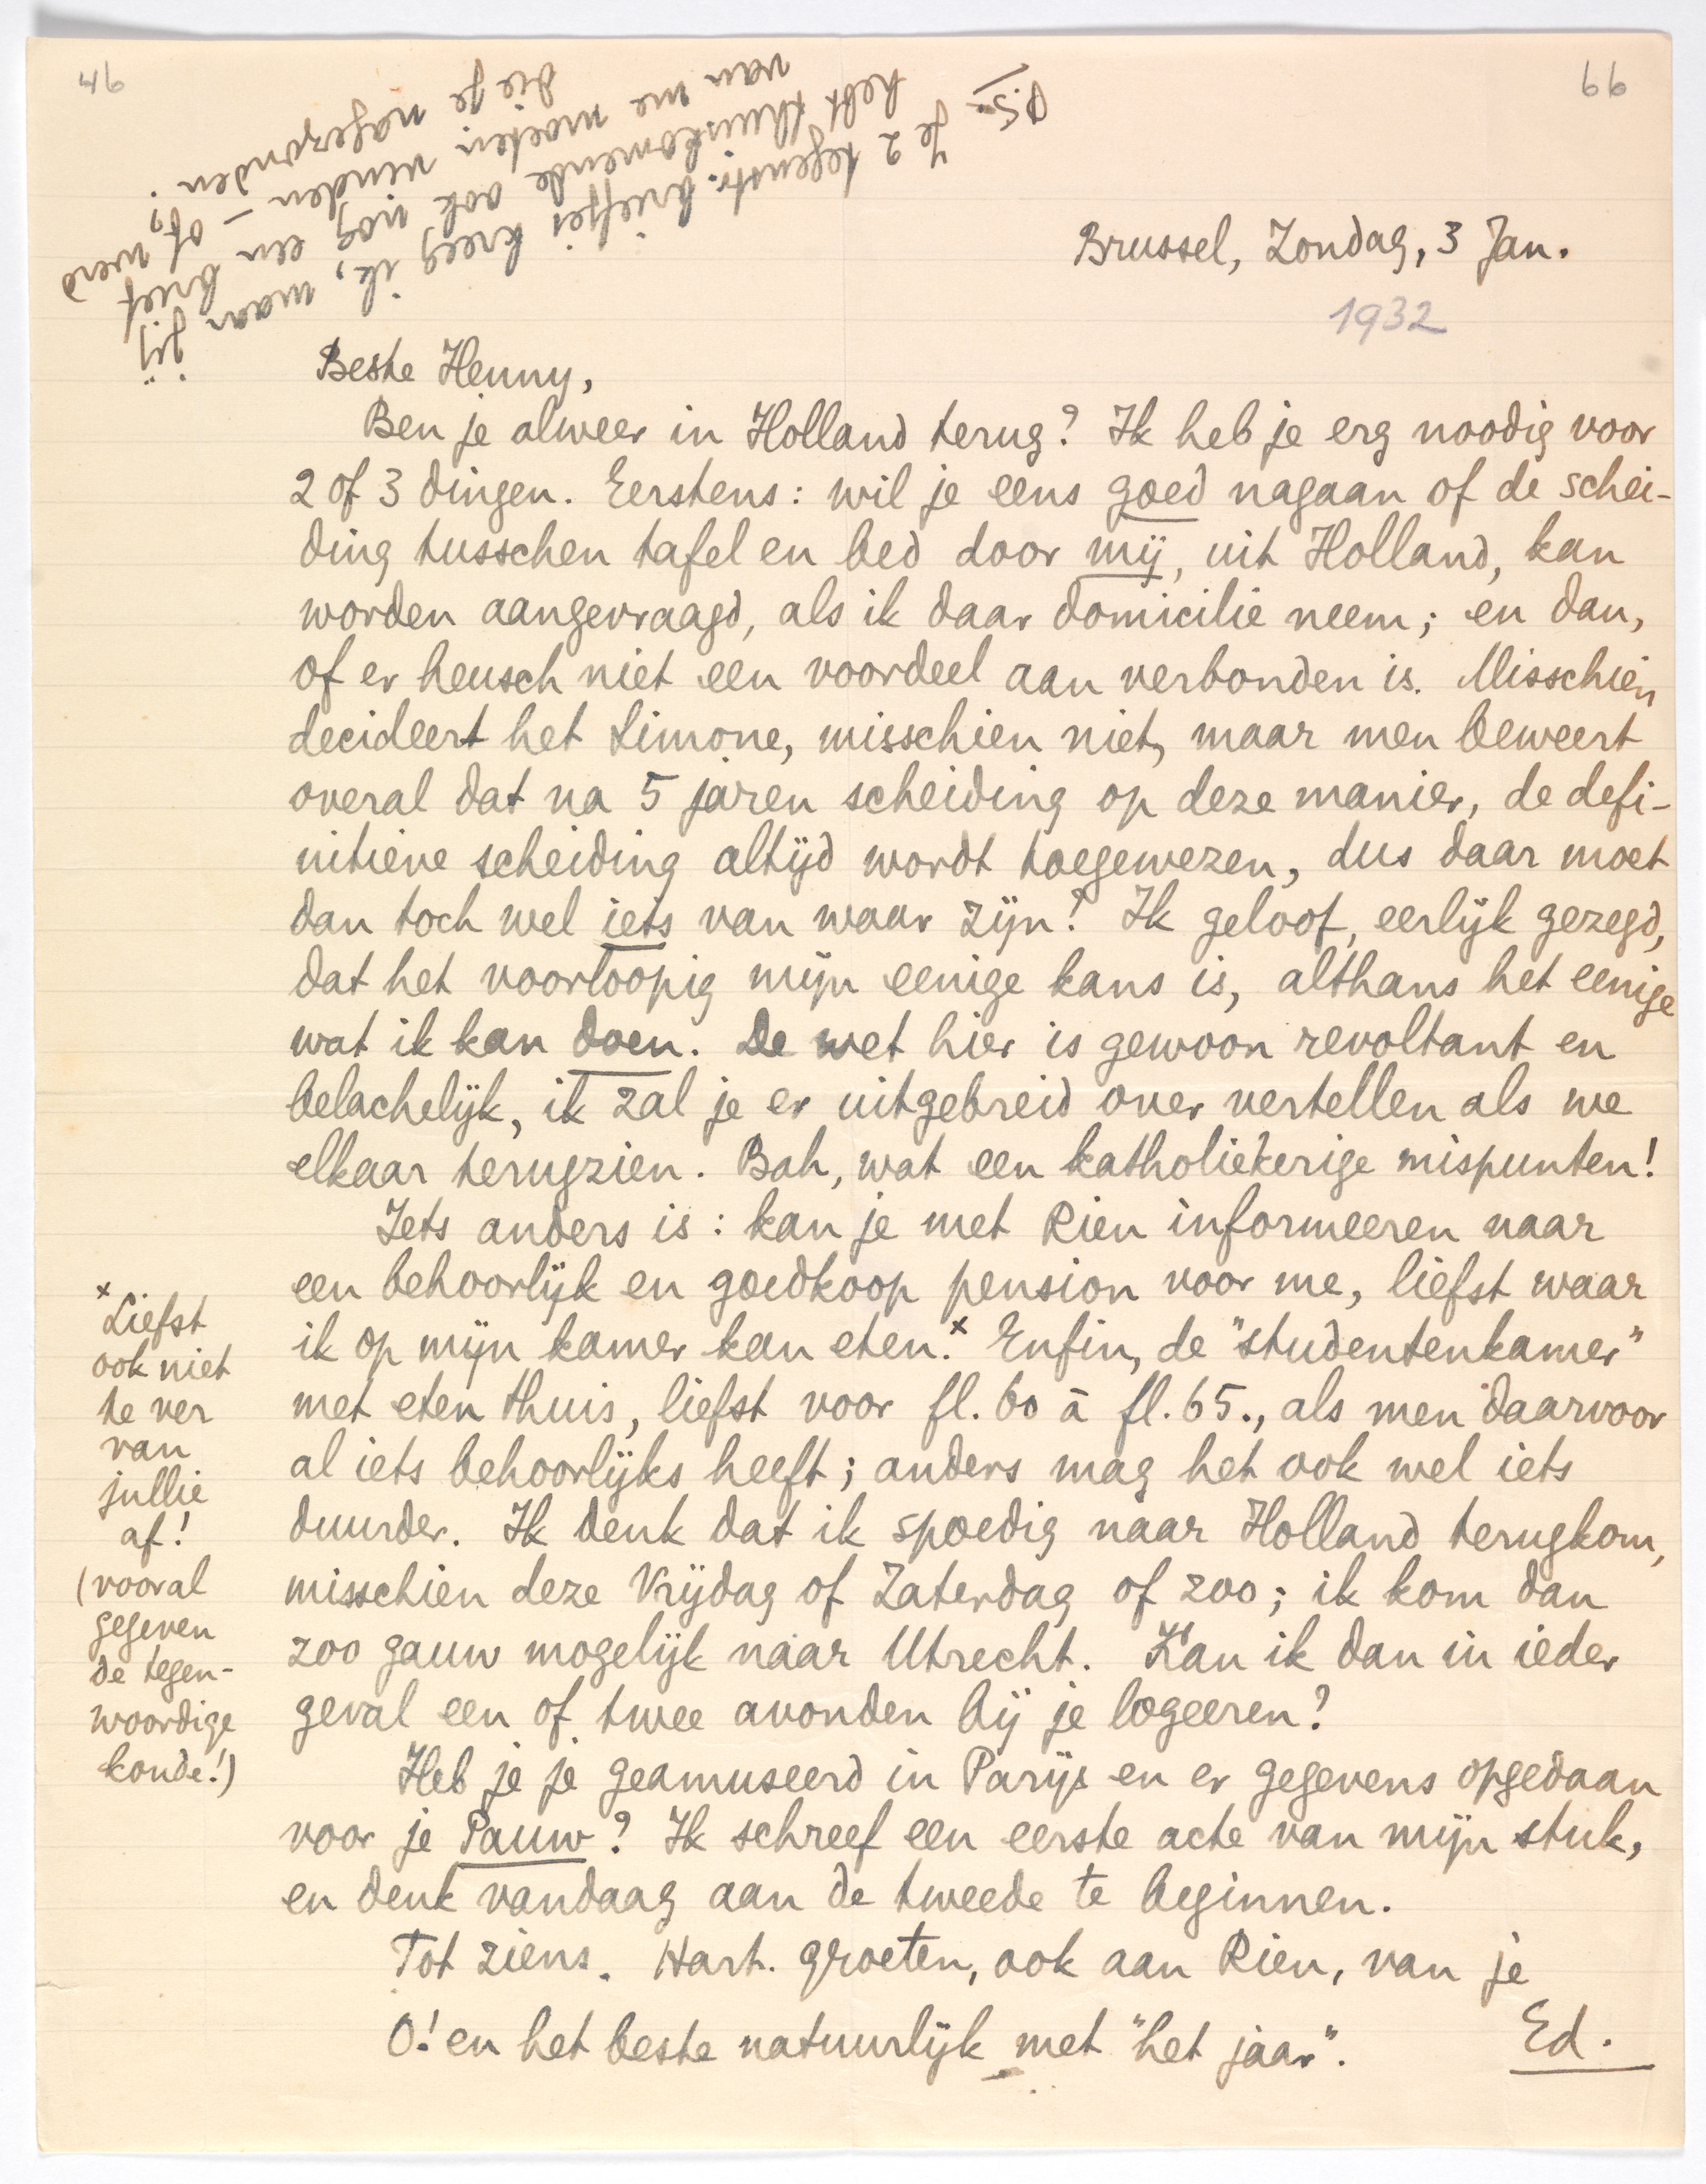 46
66
P.S. Je 2 tegenstr. briefjes kreeg ik, maar jij
hebt thuiskomende ook nog een brief
van me moeten vinden – of werd
die je nagezonden?
Brussel, Zondag, 3 Jan.
1932
Beste Henny,
Ben je alweer in Holland terug? Ik heb je erg noodig voor
2 of 3 dingen. Eerstens: wil je eens goed nagaan of de schei-
ding tusschen tafel en bed door mij, uit Holland, kan
worden aangevraagd, als ik daar domicilie neem; en dan,
of er heusch niet een voordeel aan verbonden is. Misschien
decideert het Simone, misschien niet, maar men beweert
overal dat na 5 jaren scheiding op deze manier, de defi-
nitieve scheiding altijd wordt toegewezen, dus daar moet
dan toch wel iets van waar zijn! Ik geloof, eerlijk gezegd,
dat het voorloopig mijn eenige kans is, althans het eenige
wat ik kan doen. De wet hier is gewoon revoltant en
belachelijk, ik zal je er uitgebreid over vertellen als we
elkaar terugzien. Bah, wat een katholiekerige mispunten!
Iets anders is: kan je met Rien informeeren naar
een behoorlijk en goedkoop pension voor me, liefst waar
ik op mijn kamer kan eten.x Enfin, de "studentenkamer"
met eten thuis, liefst voor fl. 60 à fl. 65., als men daarvoor
al iets behoorlijks heeft; anders mag het ook wel iets
duurder. Ik denk dat ik spoedig naar Holland terugkom,
misschien deze Vrijdag of Zaterdag of zoo; ik kom dan
zoo gauw mogelijk naar Utrecht. Kan ik dan in ieder
geval een of twee avonden bij je logeeren?
Heb je je geamuseerd in Parijs en er gegevens opgedaan
voor je Pauw? Ik schreef een eerste acte van mijn stuk,
en denk vandaag aan de tweede te beginnen.
Tot ziens. Hart. groeten, ook aan Rien, van je
Ed.
O! en het beste natuurlijk met "het jaar".
x Liefst
ook niet
te ver
van
jullie
af!
(vooral
gegeven
de tegen-
woordige
koude!)